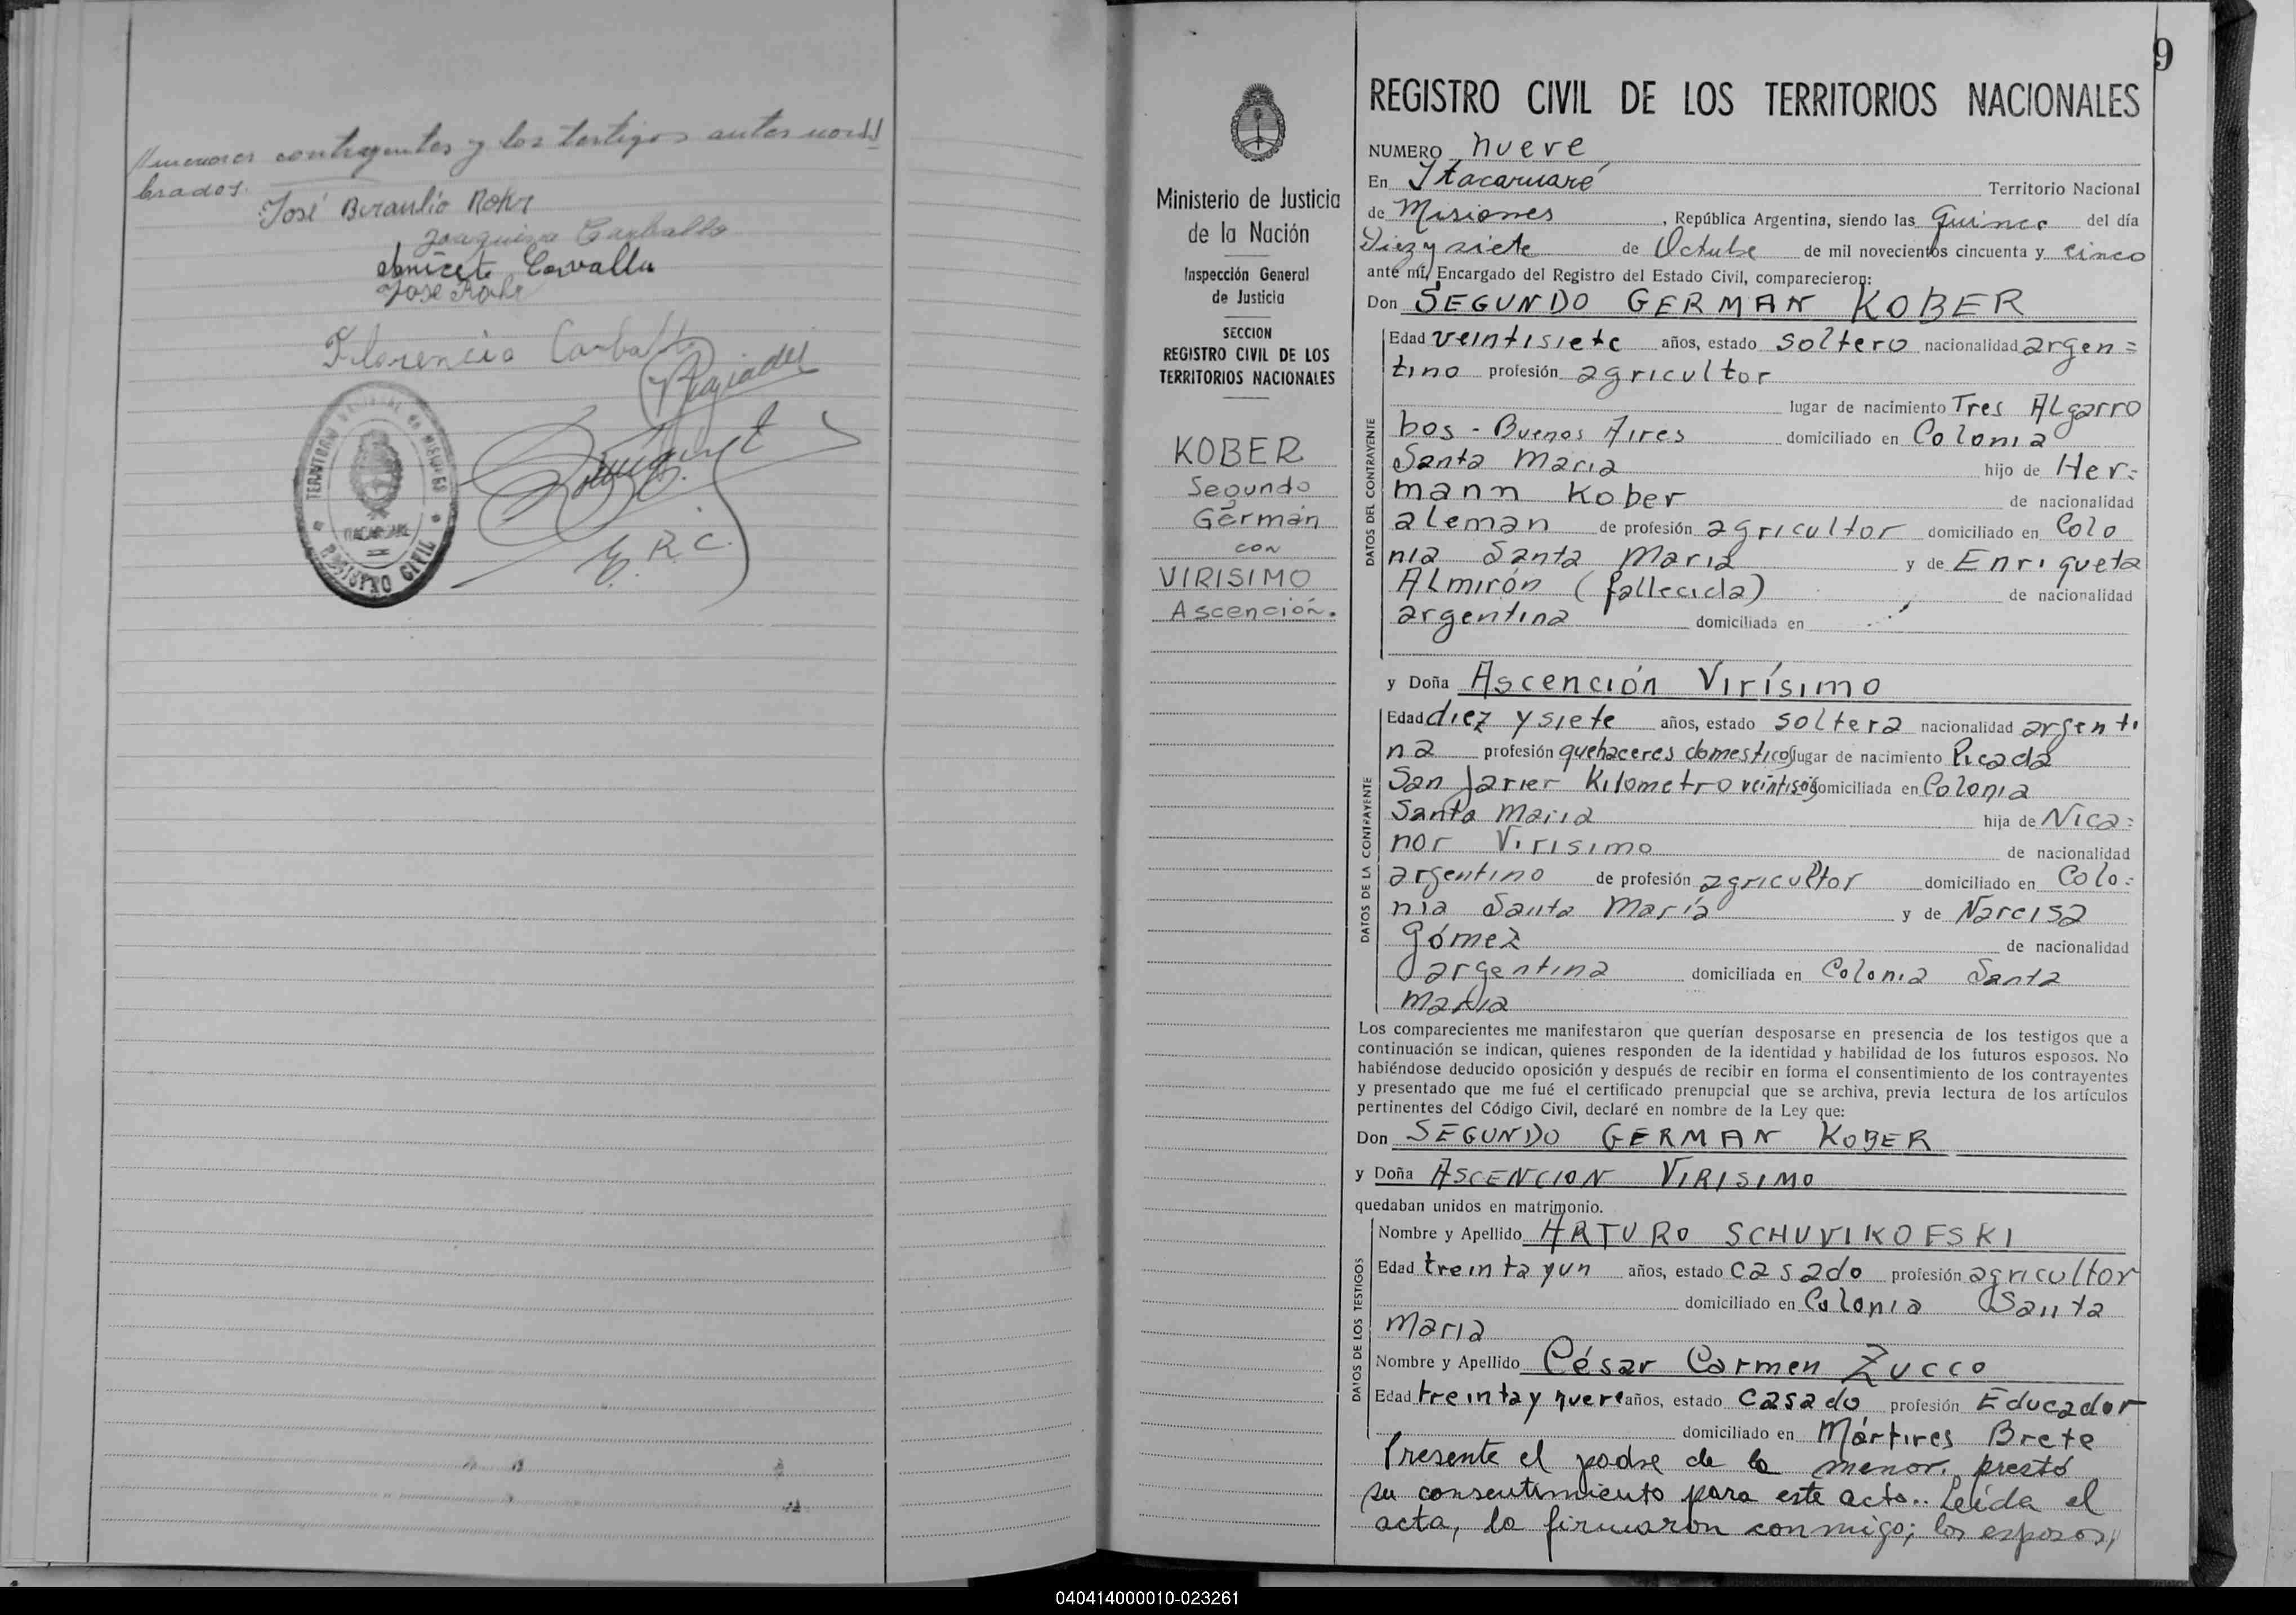 contrayentes y los testigos antes nom//
brados.
José Braulio Rohr
Joaquina Carballo
Aniceto Carvallo
José Rohr
Florencia Carballo
TERRITORIO NACIONAL de MISIONES
ITACARUARE
REGISTRO CIVIL
E. R. C.
Ministerio de Justicia
de la Nación
Inspección General
de Justicia
SECCION
REGISTRO CIVIL DE LOS
TERRITORIOS NACIONALES
KOBER
Segundo
Germán
con
VIRISIMO
Ascención.
9
REGISTRO CIVIL DE LOS TERRITORIOS NACIONALES
NUMERO nueve
En Itacaruaré Territorio Nacional
de Misiones, República Argentina, siendo las Quince del día
Diez y siete de Octubre de mil novecientos cincuenta y cinco
ante mí, Encargado del Registro del Estado Civil, comparecieron:
Don SEGUNDO GERMAN KOBER
DATOS DEL CONTRAYENTE
Edad veintisiete años, estado soltero nacionalidad argen=
tino profesión agricultor
lugar de nacimiento Tres Algarro
bos - Buenos Aires domiciliado en Colonia
Santa Maria hijo de Her=
mann Kober de nacionalidad
aleman de profesión agricultor domiciliado en Colo
nia Santa Maria y de Enriqueta
Almirón (fallecida) de nacionalidad
argentina domiciliada en
y Doña Ascención Virísimo
DATOS DE LA CONTRAYENTE
Edad diez y siete años, estado soltera nacionalidad argenti
na profesión quehaceres domesticos lugar de nacimiento Picada
San Javier Kilometro veintiseis domiciliada en Colonia
Santa Maria hija de Nica=
nor Virisimo de nacionalidad
argentino de profesión agricultor domiciliado en Colo=
nia Santa María y de Narcisa
Gómez de nacionalidad
argentina domiciliada en Colonia Santa
Maria
Los comparecientes me manifestaron que querían desposarse en presencia de los testigos que a
continuación se indican, quienes responden de la identidad y habilidad de los futuros esposos. No
habiéndose deducido oposición y después de recibir en forma el consentimiento de los contrayentes
y presentado que me fué el certificado prenupcial que se archiva, previa lectura de los artículos
pertinentes del Código Civil, declaré en nombre de la Ley que:
Don SEGUNDO GERMAN KOBER
y Doña ASCENCION VIRISIMO
quedaban unidos en matrimonio.
DATOS DE LOS TESTIGOS
Nombre y Apellido ARTURO SCHUVIKOFSKI
Edad treinta y un años, estado casado profesión agricultor
domiciliado en Colonia Santa
Maria
Nombre y Apellido César Carmen Zucco
Edad treinta y nueve años, estado casado profesión Educador
domiciliado en Mártires Brete
Presente el padre de la menor, prestó
su consentimiento para este acto.. Leída el
acta, la firmaron conmigo; los esposos,
040414000010-023261